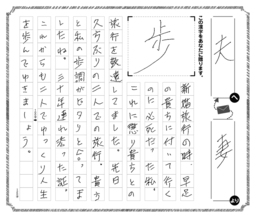 夫
へ
妻
この漢字をあなたに贈ります。
歩
新婚旅行の時、早足
の貴方に付いて行く
のに必死だった私。
これに懲り貴方との
旅行を敬遠してました。先日
久方ぶりの二人での旅行。貴方
と私の歩調がピタリと合ってま
したね。三十年連れ添った証。
これからも二人でゆっくり人生
を歩んでゆきましょう。